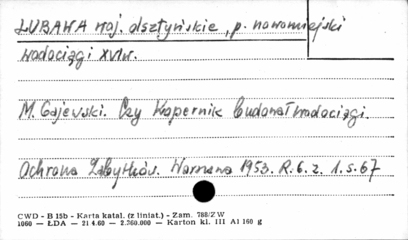 LUBAWA woj. olsztyńskie, p. nowomiejski
wodociągi XVI w.
M. Gajewski. Czy Kopernik budował wodociągi.
Ochrona Zabytków. Warszawa 1953. R. 6. z. 1. s. 67
CWD - B 15b - Karta katal. (z liniat.) - Zam. 788/Z W
1060 — ŁDA — 21 4.60 — 2.360.000 — Karton kl. III A1 160 g